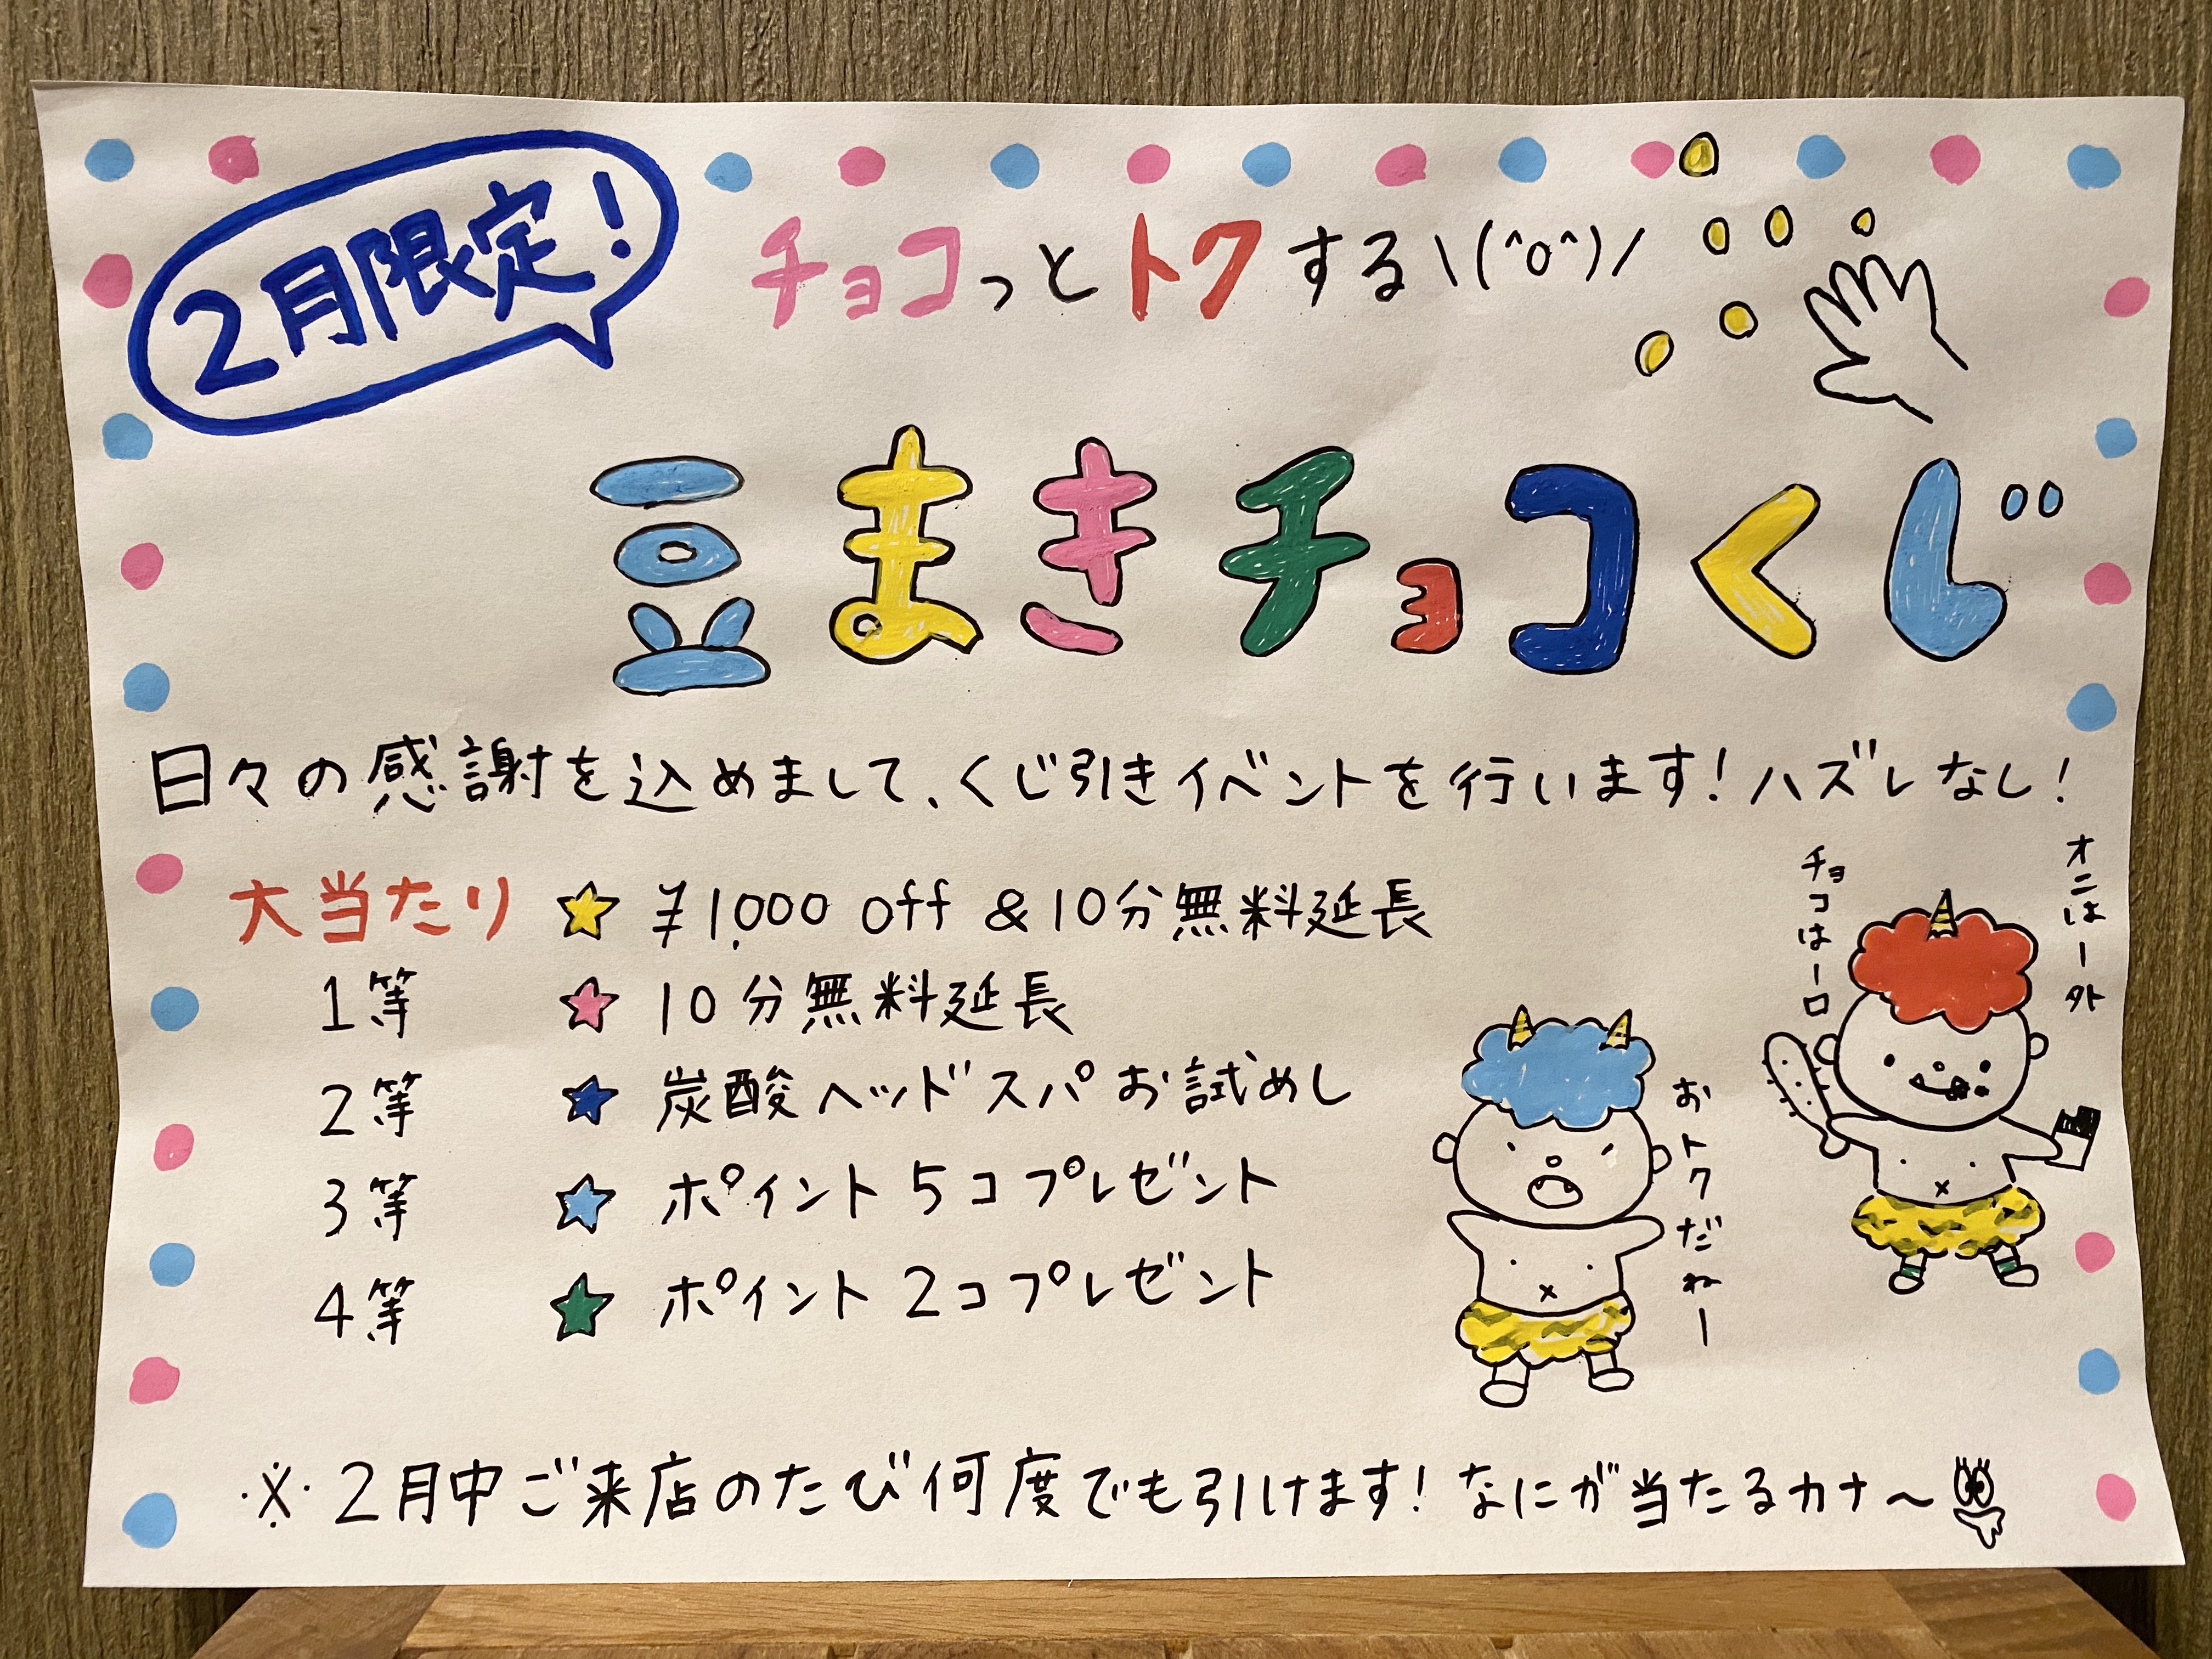 2月限定!
チョコっとトクする\(^o^)/
豆まきチョコくじ
日々の感謝を込めまして、くじ引きイベントを行います!ハズレなし!
大当たり ☆ ¥1,000 off & 10分無料延長
1等 ☆ 10分無料延長
2等 ☆ 炭酸ヘッドスパお試めし
3等 ☆ ポイント5コプレゼント
4等 ☆ ポイント2コプレゼント
オニはー外
チョコはー口
おトクだねー
※2月中ご来店のたび何度でも引けます!なにが当たるカナ〜